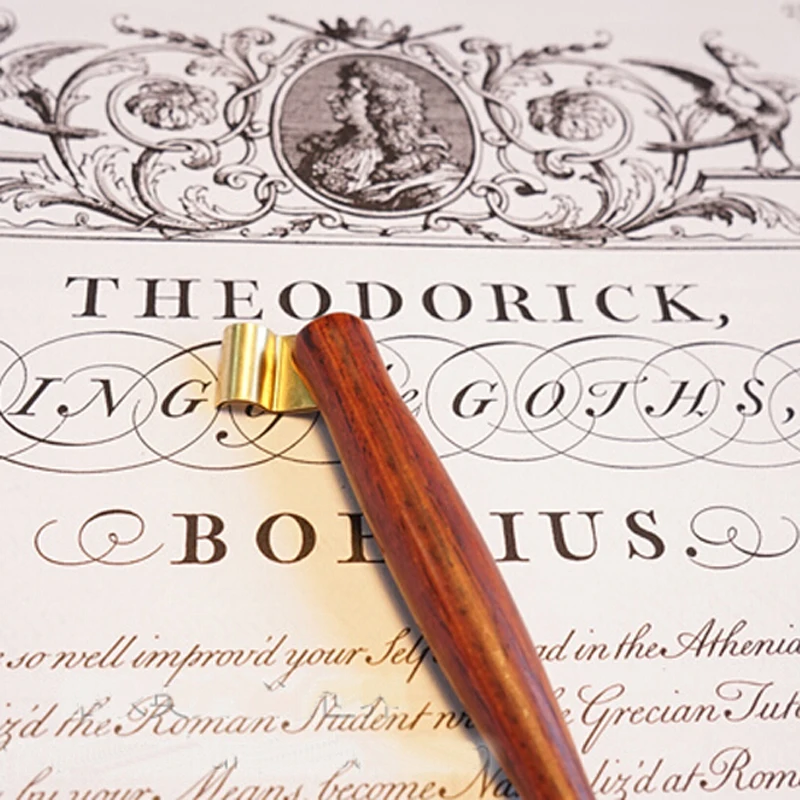 THEODORICK,
ING GOTHS,
BOE IUS.
so well improv'd your Self ad in the Athenia
iz'd the Roman Student e Grecian Tut
by your Means, become Na liz'd at Rom